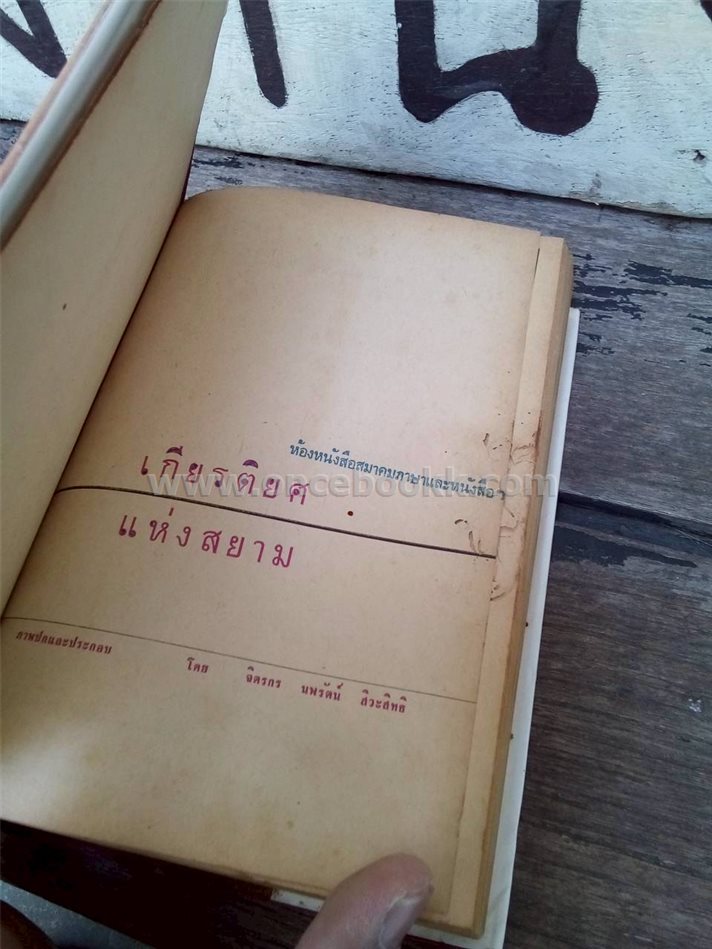 ห้องหนังสือสมาคมภาษาและหนังสือฯ
เกียรติยศ
www.oncebookk.com
แห่งสยาม
ภาพปกและประกอบ
โดย จิตรกร นพรัตน์ สิวะสิทธิ